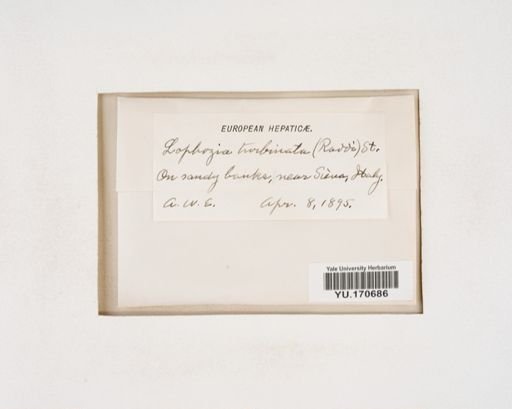 EUROPEAN HEPATICÆ.
Lophozia turbinata (Raddi) St.
On sandy banks, near Siena, Italy.
A. W. E. Apr. 8, 1895.
Yale University Herbarium
YU.170686